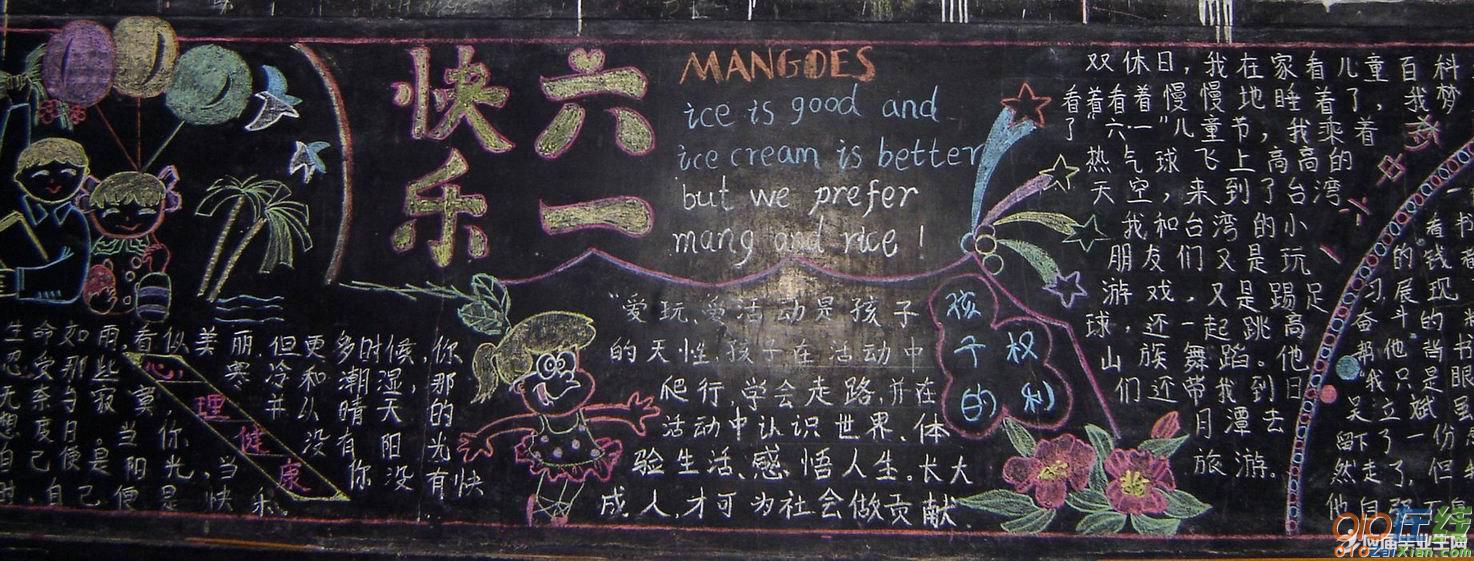 快乐
六一
MANGOES
ice is good and
ice cream is better
but we prefer
mang and rice !
双休日，我在家看儿童百科
看着看着慢慢地睡着了，我梦
了“六一”儿童节，我乘着
热气球飞上高高的
天空，来到了台湾
我和台湾的小
朋友们又是玩
游戏，又是踢足
球，还一起跳高
山族舞蹈。他
们还带我到日
月潭去
旅游。
“爱玩、爱活动是孩子
的天性，孩子在活动中
爬行，学会走路，并在
活动中认识世界、体
验生活、感悟人生。长大
成人，才可为社会做贡献
孩子的
权利
心理健康
生命如雨，看似美丽，但更多时候，你
忍受那些寒冷和潮湿，那
无奈与寂寞，并从晴天的
想度日。当你没有阳光
自己便是阳光，当你没有快
时，自己便是快乐
看书
的钱
习展现
奋斗的
帮他背
“我只是
吴立斌
留下了一份
然走了，但
他自强不
010在线
应届毕业生网
010zaiXian.com